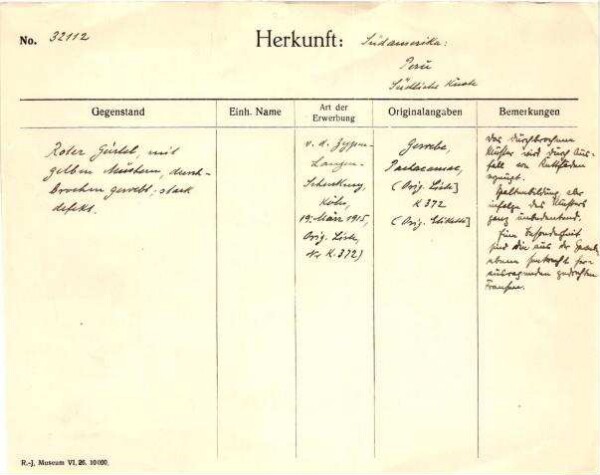 No. 32112
Herkunft: Südamerika:
Peru
Südliche Küste
Gegenstand
Einh. Name
Art der Erwerbung
Originalangaben
Bemerkungen
Roter Gürtel, mit
gelben Mustern, durch-
brochen gewebt, stark
defekt.
v. d. Zypen-
Langen-
Schenkung,
Köln,
19. März 1915,
Orig. Liste,
Nr K. 372)
Gewebe,
Pachacamac,
(Orig. Liste]
K 372
(Orig. Etikette]
Das durchbrochene
Muster wird durch Aus-
fall von Kettfäden
erzeugt.
Spaltenbildung, aber
infolge des Musters
ganz unbedeutend.
Eine Besonderheit
sind die aus der Gewebe-
ebene senkrecht her-
ausragenden gedrehten
Fransen.
R.-J. Museum VI. 26. 10000.